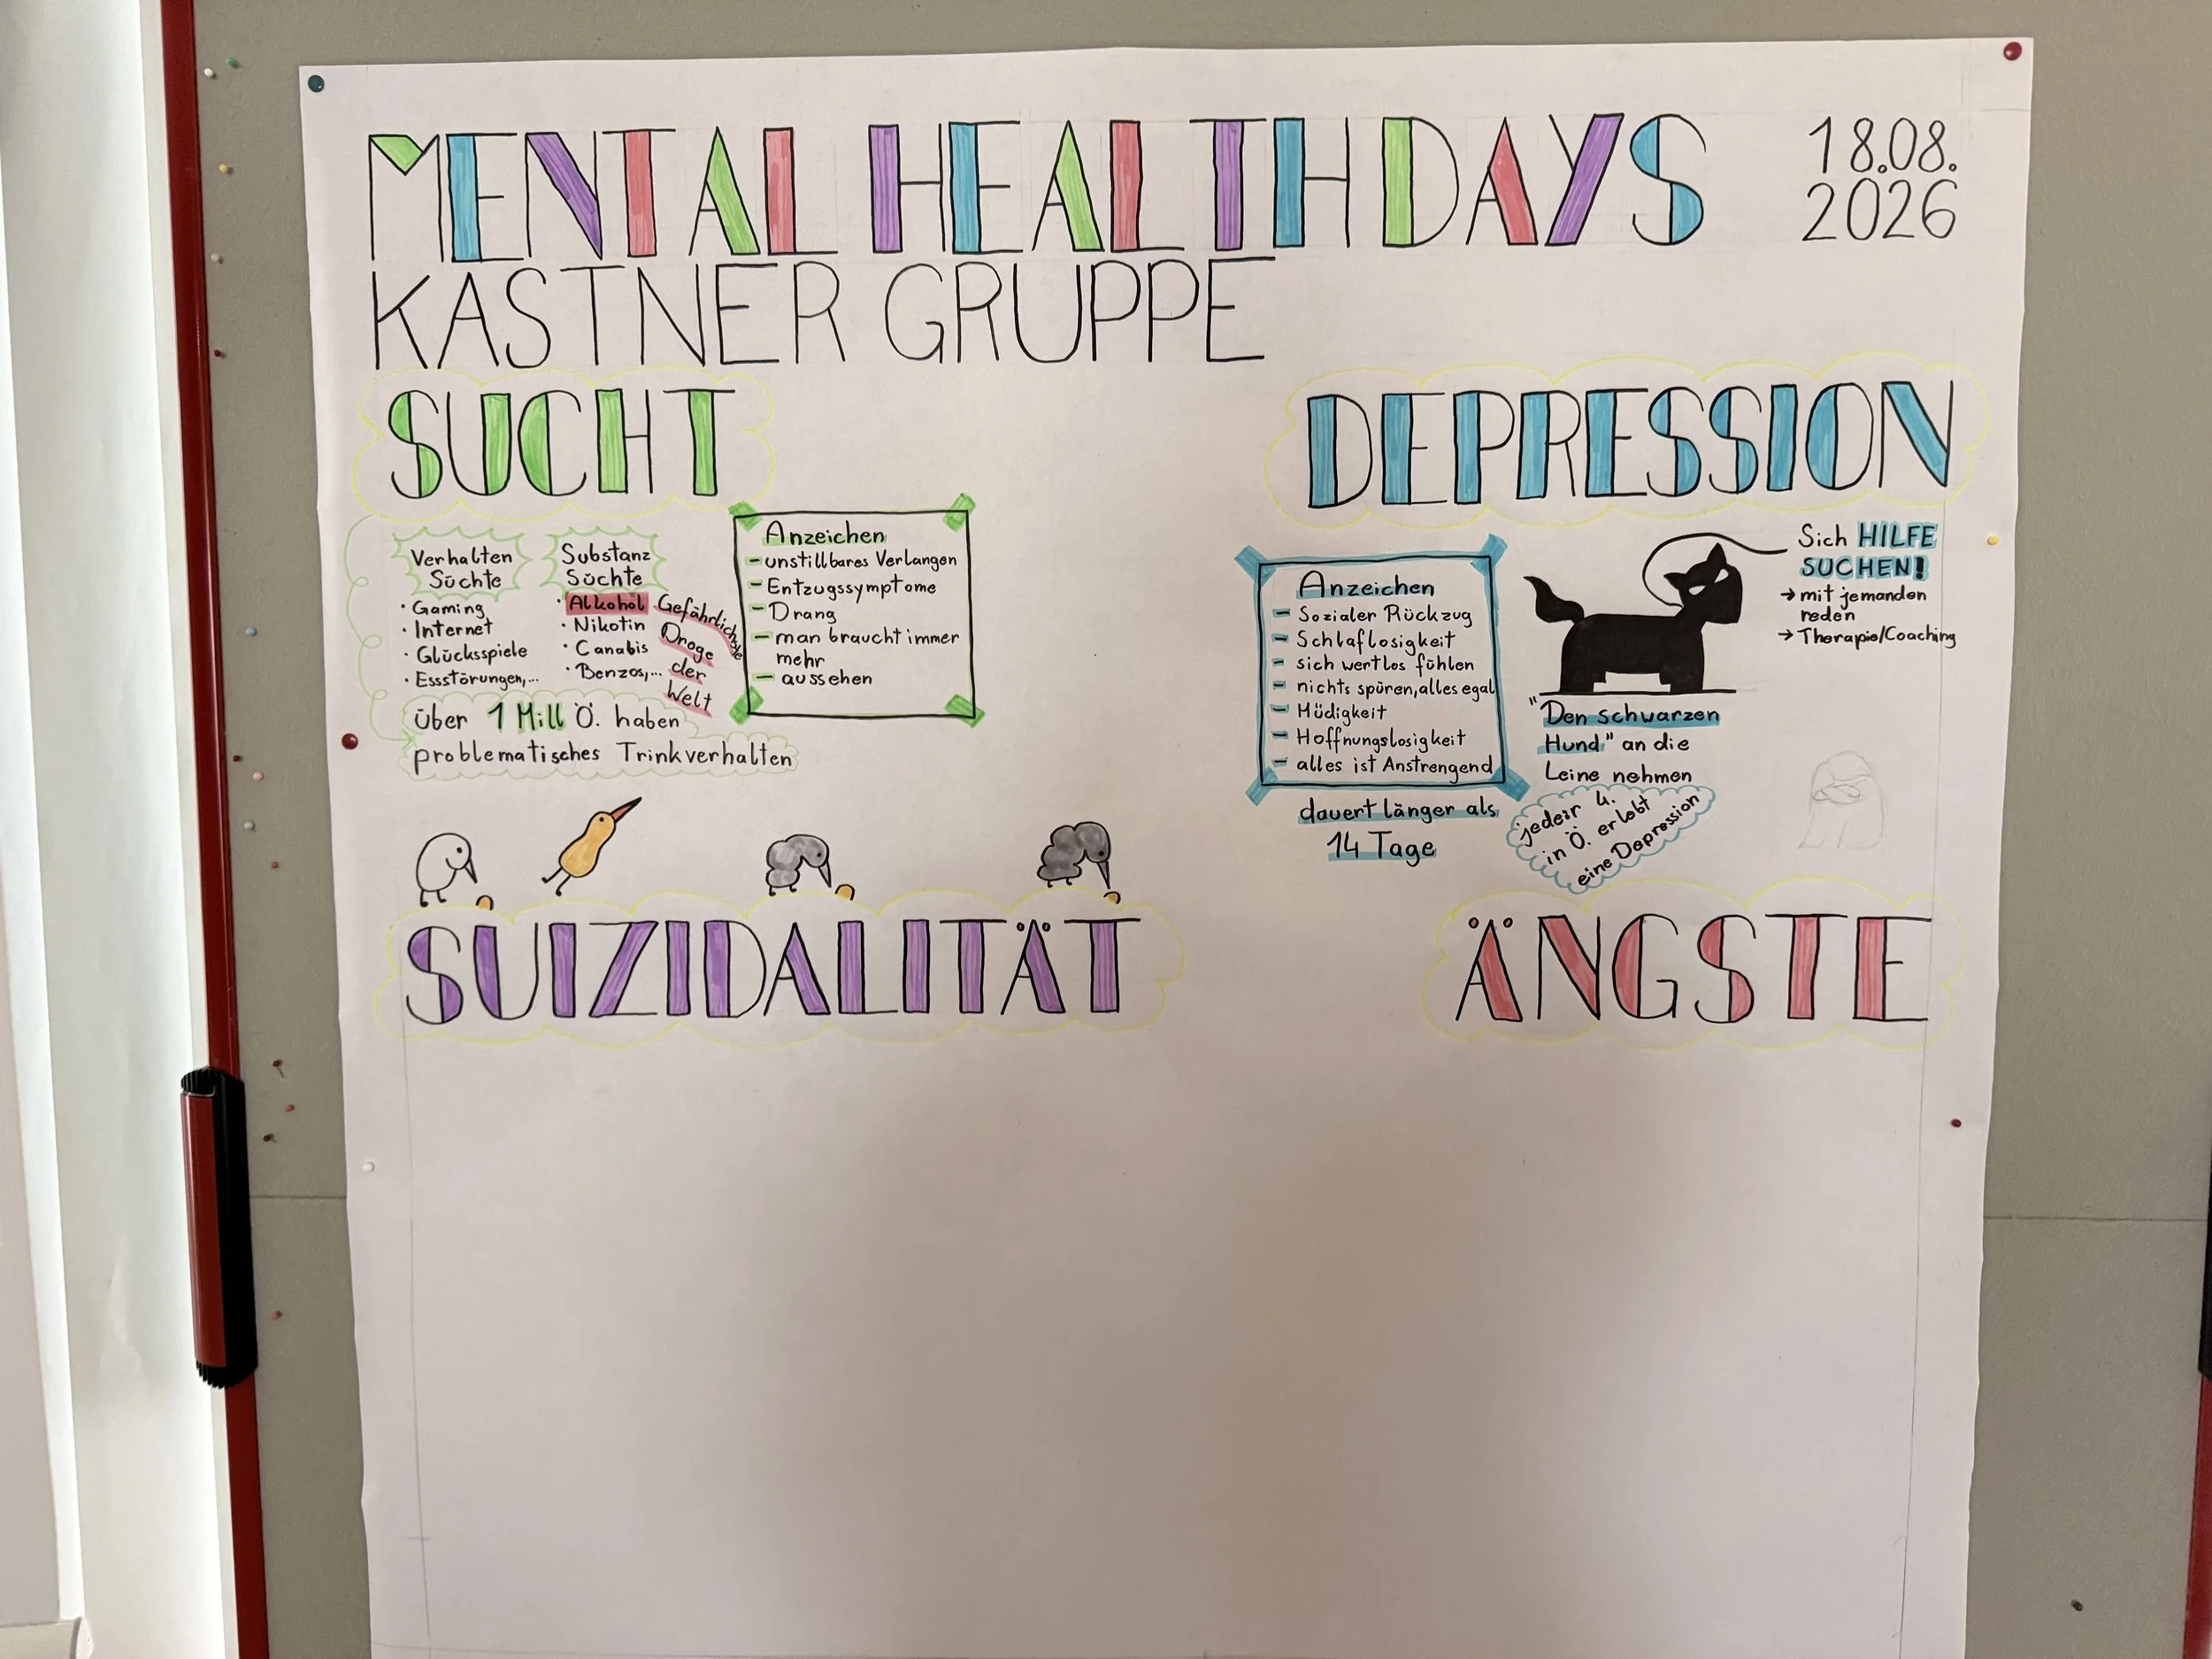 MENTAL HEALTH DAYS
18.08.
2026
KASTNER GRUPPE
SUCHT
Verhalten
Süchte
· Gaming
· Internet
· Glücksspiele
· Essstörungen,...
Substanz
Süchte
· Alkohol
· Nikotin
· Canabis
· Benzos,...
Gefährlichste
Droge
der
Welt
Anzeichen
- unstillbares Verlangen
- Entzugssymptome
- Drang
- man braucht immer
mehr
- aussehen
über 1 Mill Ö. haben
problematisches Trinkverhalten
DEPRESSION
Anzeichen
- Sozialer Rückzug
- Schlaflosigkeit
- sich wertlos fühlen
- nichts spüren, alles egal
- Müdigkeit
- Hoffnungslosigkeit
- alles ist Anstrengend
dauert länger als
14 Tage
Sich HILFE
SUCHEN!
→ mit jemanden
reden
→ Therapie/Coaching
"Den schwarzen
Hund" an die
Leine nehmen
jeder 4.
in Ö. erlebt
eine Depression
SUIZIDALITÄT
ÄNGSTE